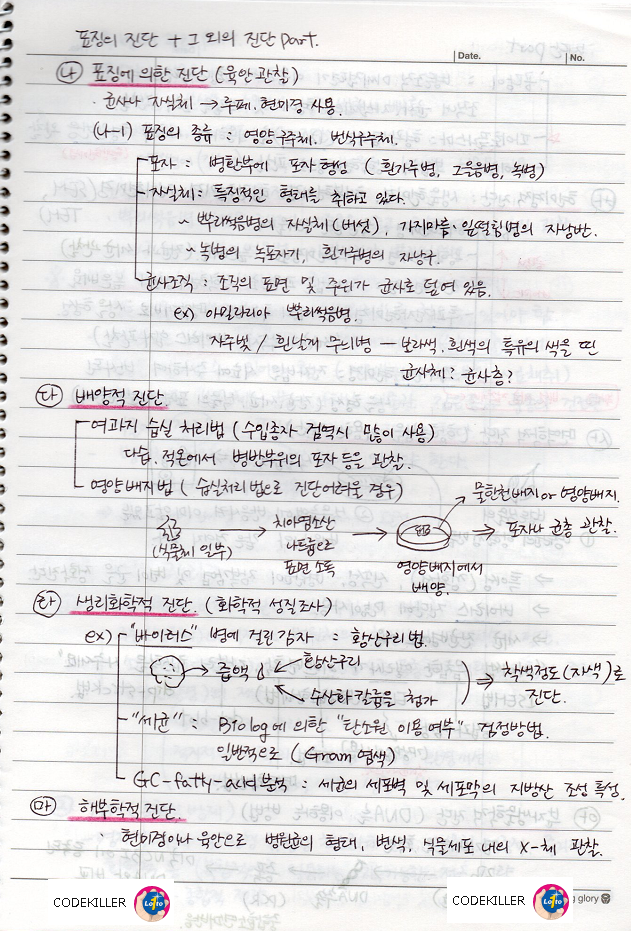 표징의 진단 + 그 외의 진단 part.
Date. No.
나 표징에 의한 진단 (육안관찰)
· 균사나 자실체 → 루페. 현미경 사용.
(나-1) 표징의 종류 : 영양구주체. 번식구주체.
포자 : 병환부에 포자 형성 ( 흰가루병, 그을음병, 녹병)
자실체 : 특징적인 형태를 취하고 있다.
뿌리썩음병의 자실체(버섯), 가지마름·잎떨림병의 자낭반.
녹병의 녹포자기, 흰가루병의 자낭구.
균사조직 : 조직의 표면 및 주위가 균사로 덮여 있음.
ex) 아밀라리아 뿌리썩음병.
자주빛 / 흰날개 무늬병 — 보라색. 흰색의 특유의 색을 띤
균사체? 균사층?
다 배양적 진단
여과지 습실 처리법 (수입종자 검역시 많이 사용)
다습. 적온에서 병반부위의 포자 등을 관찰.
영양배지법 ( 습실처리법으로 진단어려울 경우)
물한천배지 or 영양배지.
(식물체 일부) → 치아염소산 나트륨으로 표면 소독 → 영양배지에서 배양. ⇒ 포자나 균총 관찰.
라 생리화학적 진단. (화학적 성질조사)
ex) "바이러스" 병에 걸린 감자 : 황산구리법.
→ 즙액 ← 황산구리
← 수산화칼륨을 첨가
⇒ 착색정도(자색)로 진단.
"세균" : Biolog에 의한 "탄소원 이용여부" 검정방법.
일반적으로 (Gram염색)
GC-fatty-acid분석 : 세균의 세포벽 및 세포막의 지방산 조성 특성.
마 해부학적 진단.
: 현미경이나 육안으로 병원균의 형태, 변색, 식물세포 내의 X-체 관찰.
CODEKILLER Lotto CODEKILLER Lotto g glory